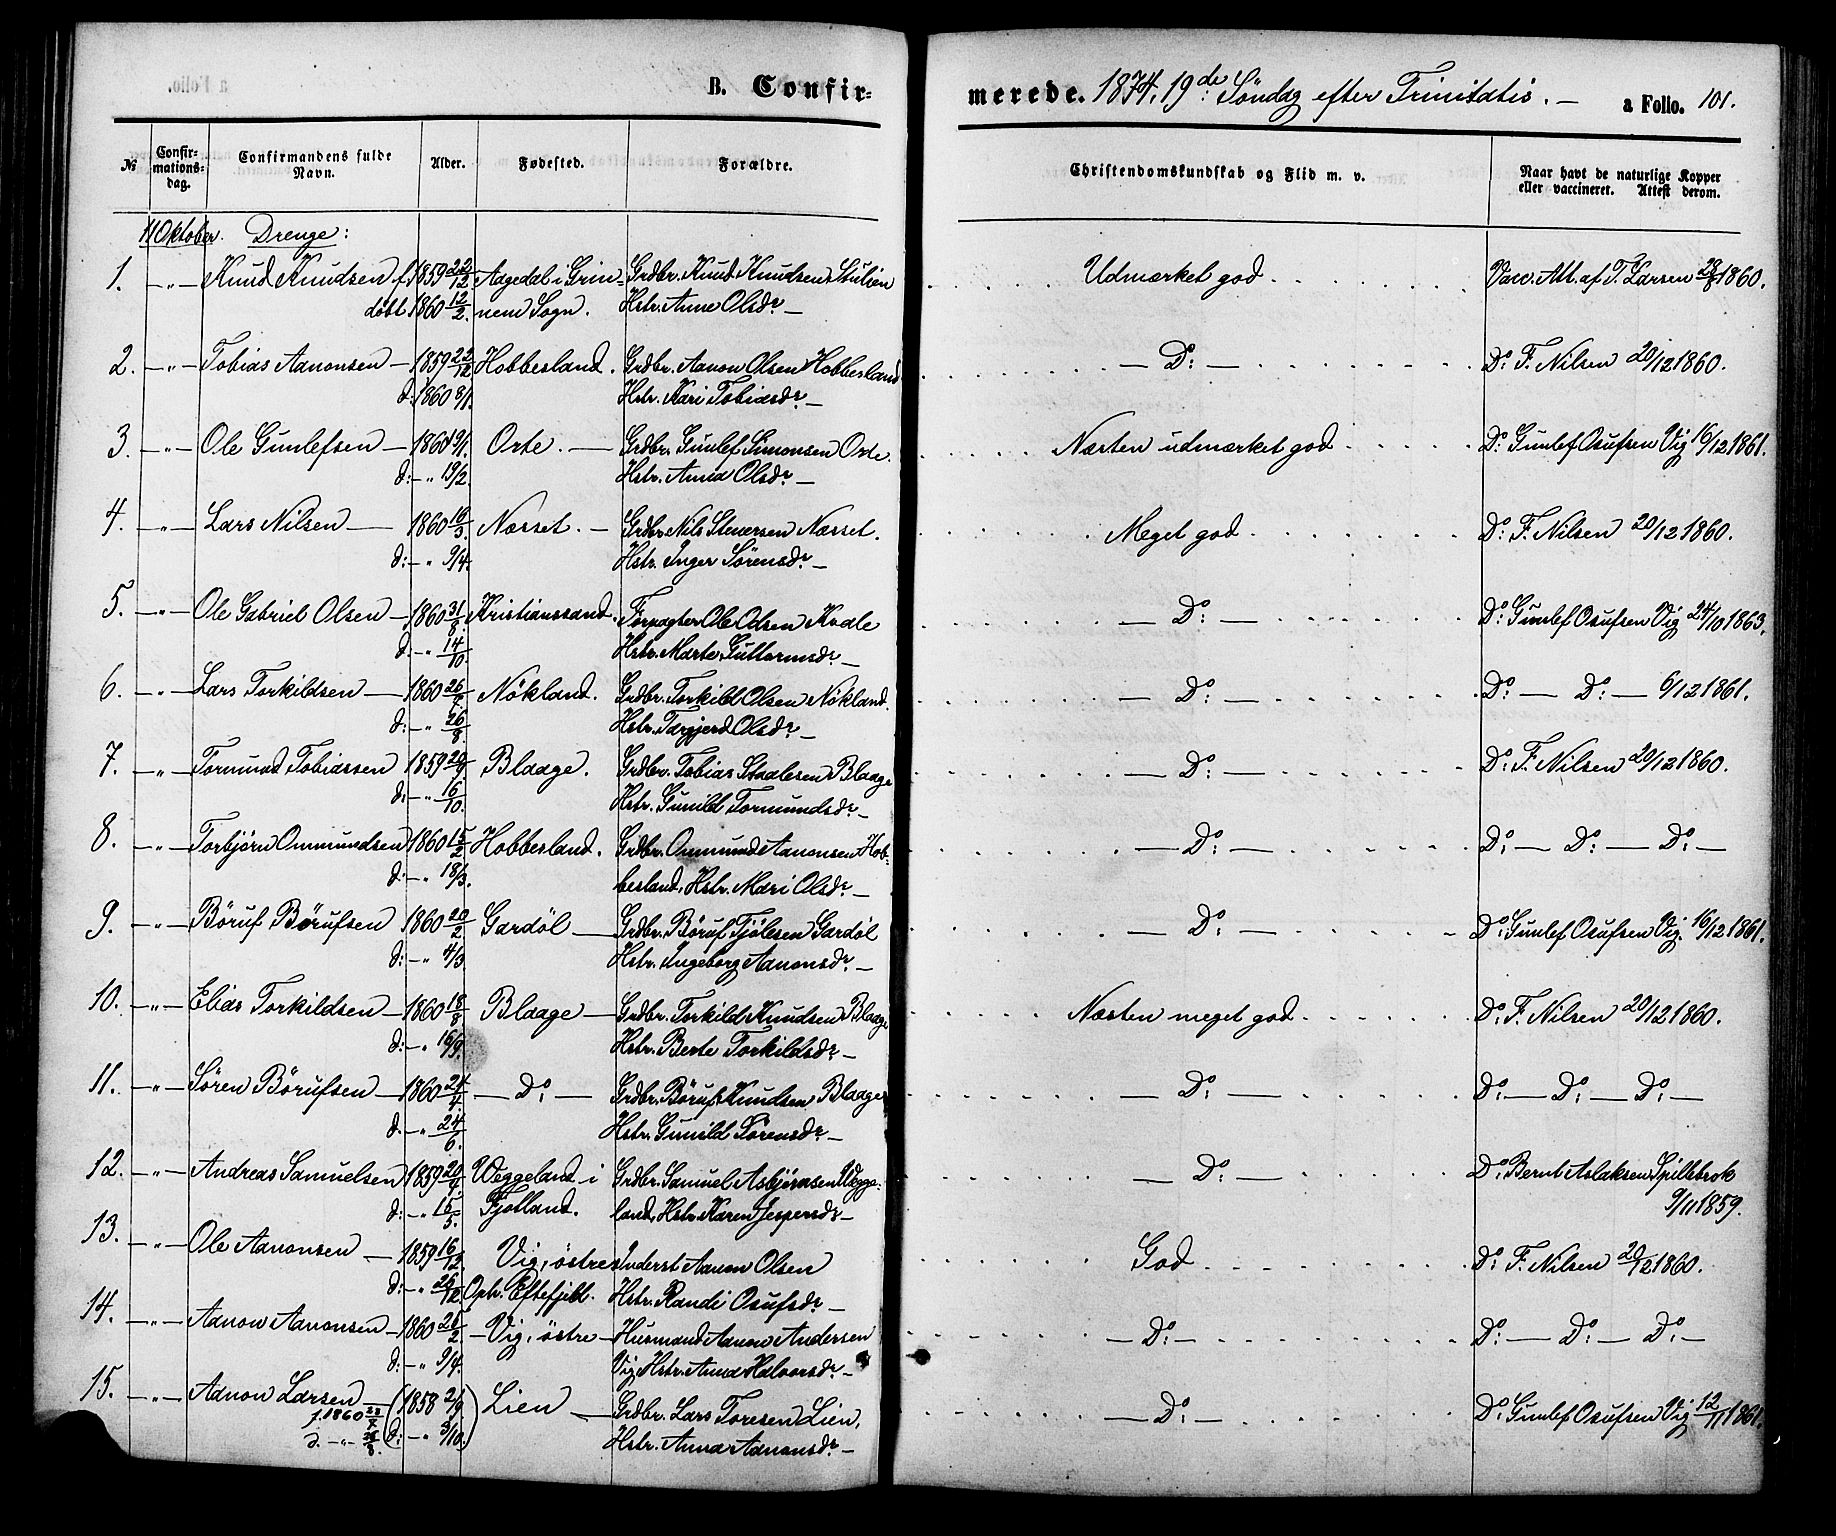 B. Confirmerede. 1874, 19de Søndag efter Trinitatis. — a Folio. 101.
№ Confirmationsdag. Confirmandens fulde Navn. Alder. Fødested. Forældre. Christendomskundskab og Flid m. v. Naar havt de naturlige Kopper eller vaccineret. Attest derom.
11 Oktober. Drenge:
1. —"— Knud Knudsen f. 1859 22/12 Aagedal i Grin- Grdbr. Knud Knudsen Stulien Udmærket god Vacc. Att. af T. Larsen 28/8 1860.
døbt 1860 12/2. nem Sogn. Hstr. Anne Olsdr. —
2. —"— Tobias Aanonsen — 1859 22/12 Hobbesland. Grdbr. Aanon Olsen Hobbesland — Do: — Do: F. Nilsen 20/12 1860.
d: 1860 8/1. Hstr. Kari Tobiasdr. —
3. —"— Ole Gunlefsen — 1860 9/1. Orte. — Grdbr. Gunlef Simonsen Orte. Næsten udmærket god Do: Gunlef Osufsen Vig 16/12 1861.
d: — " 19/2. Hstr. Anna Olsdr. —
4. —"— Lars Nilsen — 1860 16/3. Næsset. — Grdbr. Nils Stenersen Næsset. Meget god Do: F. Nilsen 20/12 1860.
d: — " 9/4. Hstr. Inger Sørensdr. —
5. —"— Ole Gabriel Olsen — 1860 31/8 Kristianssand. Forpagter Ole Olsen Kvale — Do: — Do: Gunlef Osufsen Vig 24/10 1863.
d: — " 14/10. Hstr. Marte Guttormsdr. —
6. —"— Lars Torkildsen — 1860 26/7. Nökland. Grdbr. Torkild Olsen Nökland. — Do: — Do: — Do: — 6/12 1861.
d: — " 26/8 Hstr. Targjerd Olsdr. —
7. —"— Tormund Tobiassen 1859 29/9 Blaage. Grdbr. Tobias Staalesen Blaage — Do: — Do: F. Nilsen 20/12 1860.
d: — " 16/10. Hstr. Gunild Tormundsdr. —
8. —"— Torbjørn Ommundsen 1860 15/2 Hobbesland. Grdbr. Ommund Aanonsen Hob- — Do: — Do: — Do: — Do: —
d: — " 18/3. besland, Hstr. Mari Olsdr. —
9. —"— Böruf Börufsen 1860 20/2 Gardöl — Grdbr. Böruf Tjölesen Gardöl — Do: — Do: Gunlef Osufsen Vig. 16/12 1861.
d: — " 4/3. Hstr. Ingeborg Aanonsdr. —
10. —"— Elias Torkildsen — 1860 18/8 Blaage — Grdbr. Torkild Knudsen Blaage Næsten meget god Do: F. Nilsen 20/12 1860.
d: — " 16/9. Hstr. Berte Torkildsdr. —
11. —"— Sören Börufsen — 1860 24/4. — Do: — Grdbr. Böruf Knudsen Blaage — Do: — Do: — Do: — Do: —
d: — " 24/6. Hstr. Gunild Sörensdr. —
12. —"— Andreas Samuelsen 1859 20/4. Weggeland i Grdbr. Samuel Asbjörnsen Vegge- — Do: — Do: Bernt Aslaksen Spilsbrok
d: — " 15/5. Fjotland. land, Hstr. Karen Jespersdr — 9/11 1859.
13. —"— Ole Aanonsen — 1859 16/12. Vig, östre Inderst Aanon Olsen God Do: F. Nilsen 20/12 1860.
d: — " 26/12. Oph. Eftefjeld. Hstr. Randi Osufsdr. —
14. —"— Aanon Aanonsen — 1860 25/2 — Vig, östre — Husmand Aanon Andersen — Do: — Do: — Do: — Do: —
d: — " 9/4. Vig Hstr. Anna Halvorsdr. —
15. —"— Aanon Larsen — (1858 2/9) Lien — Grdbr. Lars Toresen Lien, — Do: — Do: Gunlef Osufsen Vig 12/11 1861.
f. 1860 28/7 d: — " 3/10. Hstr. Anna Aanonsdr. —
d. — " — 26/8.